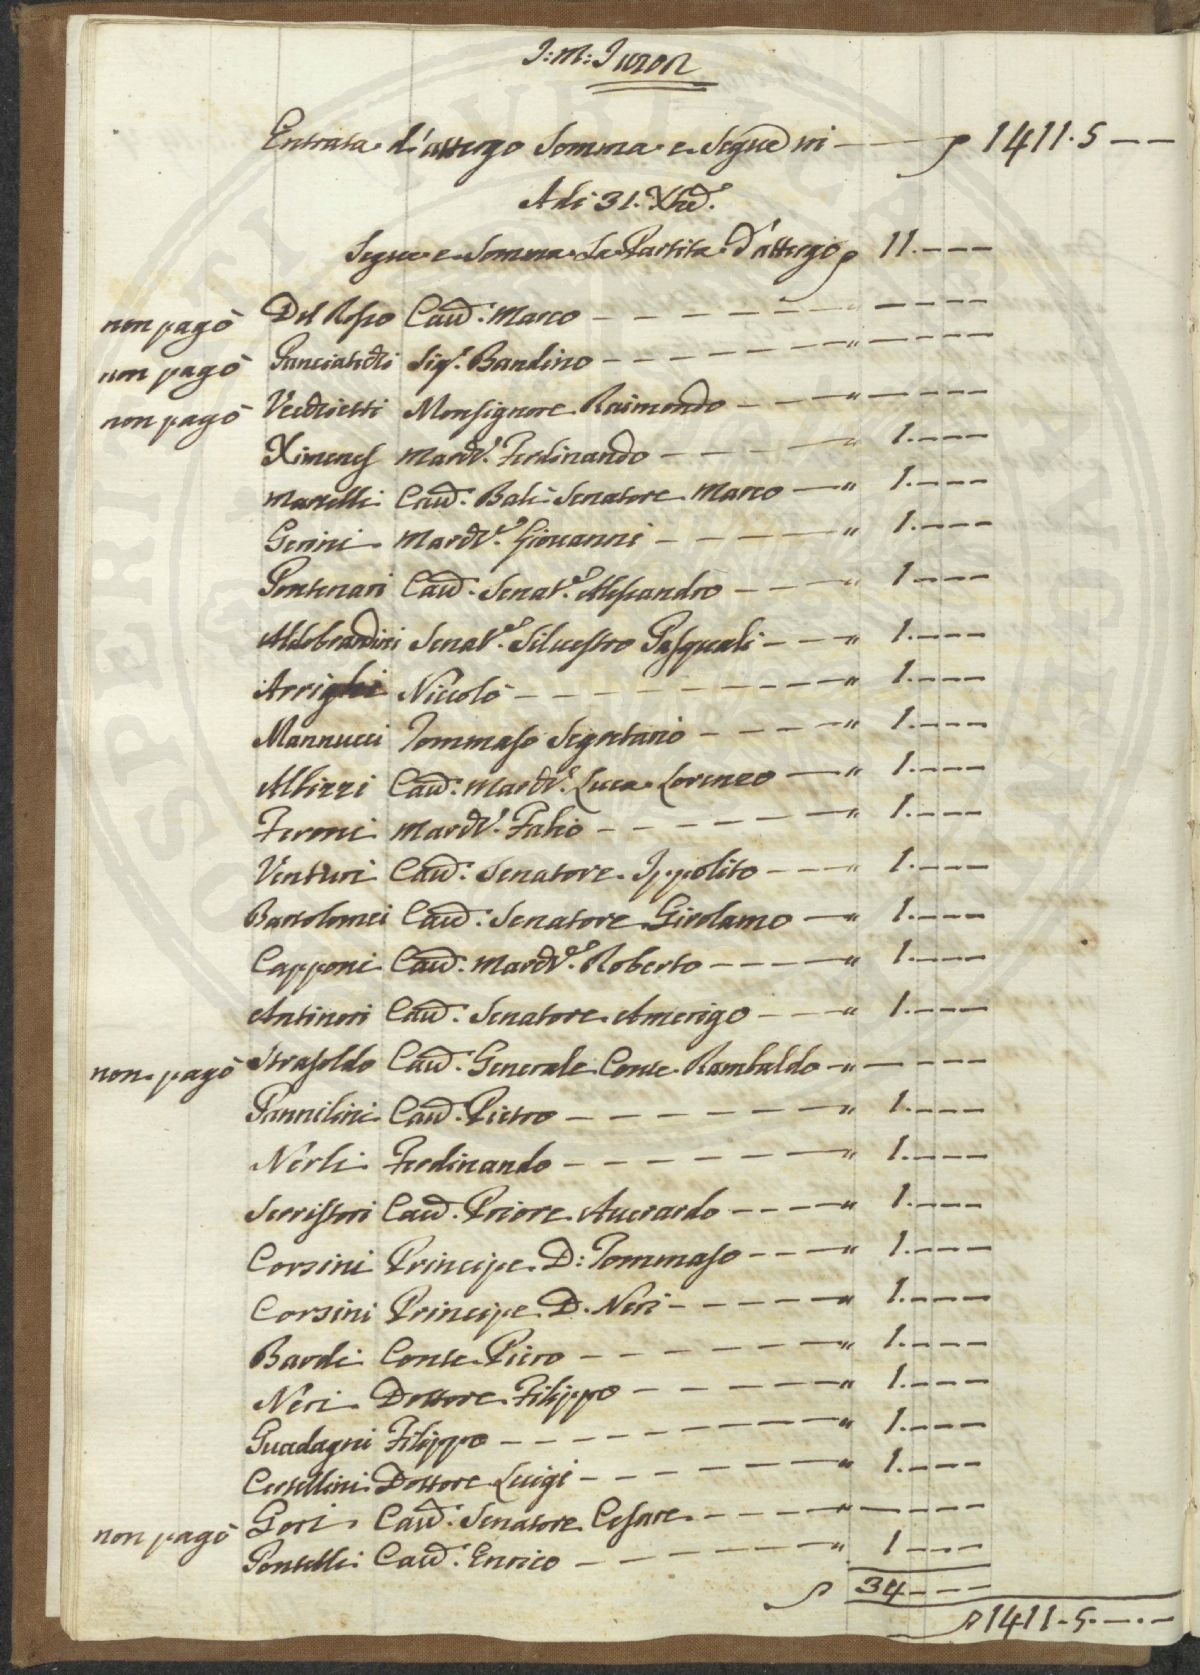 J: M: Juron
Entrata d'attergo Somma e Segue in — — — 1411.5 — —
Adi 31. Xbr̃e
Segue e Somma La Partita d'attergo 11. — — —
non pagò Del Rosso Cav.: Marco — — — — — — — " — — — —
non pagò Panciatichi Sig.r Bandino — — — — — — — " — — — —
non pagò Vecchietti Monsignore Raimondo — — — " — — — —
Ximenes March.e Ferdinando — — — — — " 1. — — —
Martelli Cav.: Balì Senatore Marco — " 1. — — —
Gerini March.e Giovanni — — — — — " 1. — — —
Pontenari Cav.: Senat.e Alessandro — — — " 1. — — —
Aldobrandini Senat.e Silvestro Pasquali — — — " 1. — — —
Arrighi Niccolò — — — — — — — — " 1. — — —
Mannucci Tommaso Segretario — — — — " 1. — — —
Albizzi Cav.: March.e Luca Lorenzo — " 1. — — —
Feroni March.e Fabio — — — — — — " 1. — — —
Venturi Cav.: Senatore Ippolito — — — " 1. — — —
Bartolomei Cav.: Senatore Girolamo — " 1. — — —
Capponi Cav.: March.e Roberto — — — — " 1. — — —
Antinori Cav.: Senatore Amerigo — — — " 1. — — —
non pagò Strasoldo Cav.: Generale Conte Rambaldo — " — — — —
Pannilini Cav.: Pietro — — — — — — — " 1. — — —
Nerli Ferdinando — — — — — — — " 1. — — —
Serristori Cav.: Priore Averardo — — — — " 1. — — —
Corsini Principe D: Tommaso — — — " 1. — — —
Corsini Principe D. Neri — — — — — " 1. — — —
Bardi Conte Piero — — — — — — — " 1. — — —
Neri Dottore Filippo — — — — — " 1. — — —
Guadagni Filippo — — — — — — — — " 1. — — —
Certellini Dottore Luigi — — — — — — " 1. — — —
non pagò Gori Cav.: Senatore Cesare — — — — " — — — —
Pontelli Cav.: Enrico — — — — — — " 1 — — —
34 — — —
1411.5. — — —